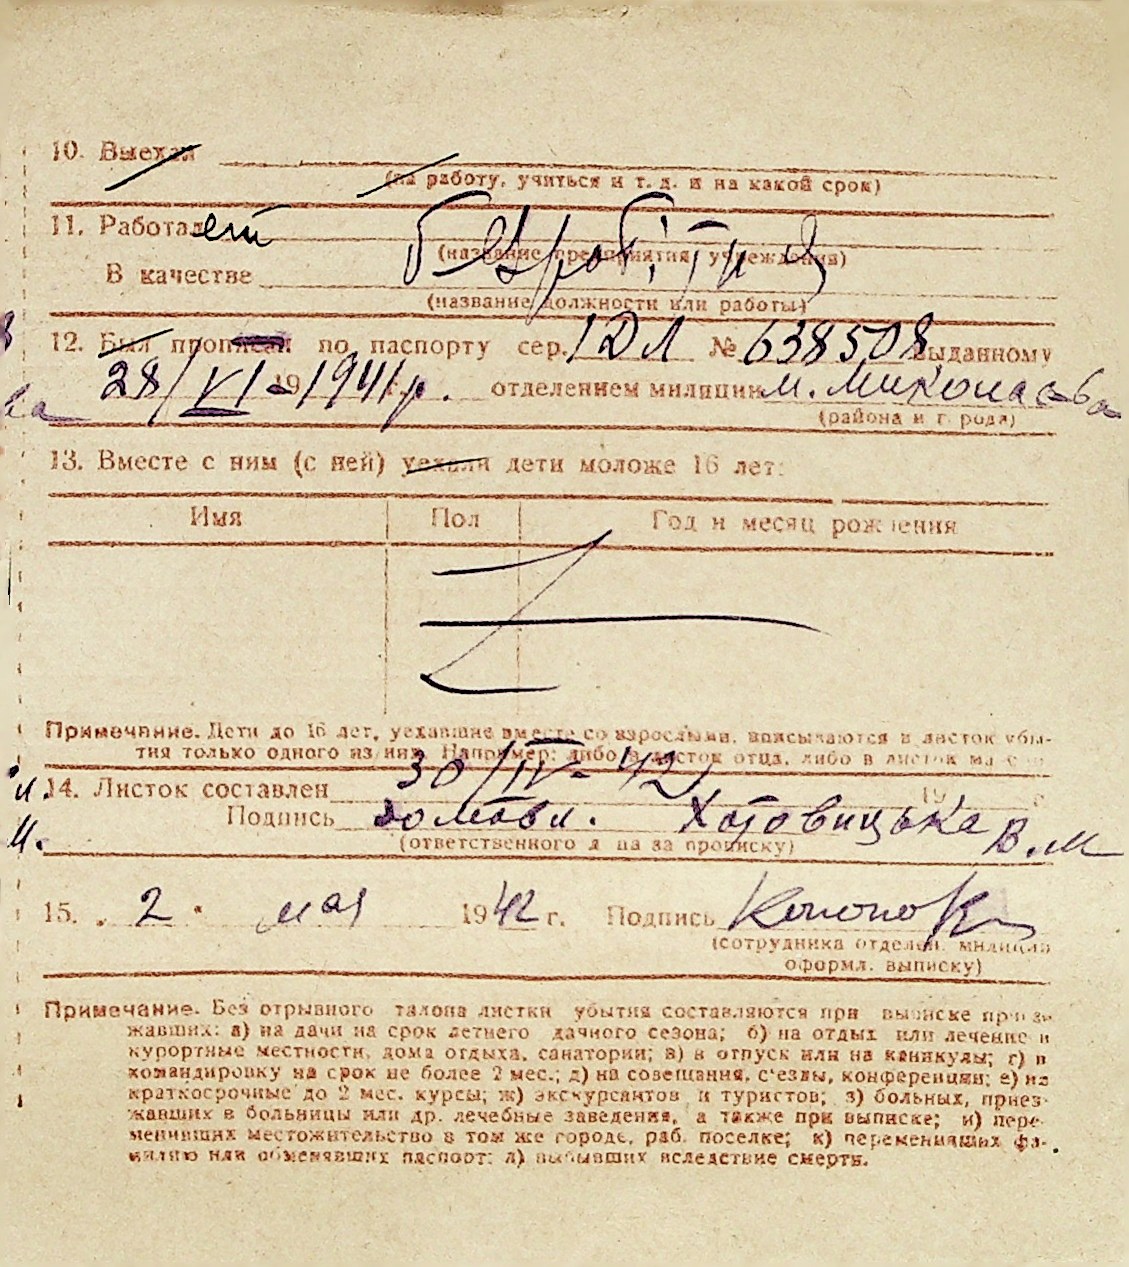 10. Выехал
(на работу, учиться и т. д. и на какой срок)
11. Работает безробітна
(название предприятия, учреждения)
В качестве
(название должности или работы)
12. Был прописан по паспорту сер. ІДЛ № 638508 выданному
28/VI - 19 1941 р. отделением милиции м. Миколаєва
(района и г рода)
13. Вместе с ним (с ней) уехали дети моложе 16 лет:
Имя Пол Год и месяц рождения
Примечание. Дети до 16 лет, уехавшие вместе со взрослыми, вписываются в листок убы-
тия только одного из них. Например: либо в листок отца, либо в листок ма
14. Листок составлен 30/IV- 42 19 г
Подпись домовл. Хотовицька В.М
(ответственного л ца за прописку)
15. „ 2 " мая 1942 г. Подпись
(сотрудника отделен. милиции
оформл. выписку)
Примечание. Без отрывного талона листки убытия составляются при выписке приез-
жавших: а) на дачи на срок летнего дачного сезона; б) на отдых или лечение в
курортные местности, дома отдыха, санатории; в) в отпуск или на каникулы; г) в
командировку на срок не более 2 мес.; д) на совещания, с'езды, конференции; е) на
краткосрочные до 2 мес. курсы; ж) экскурсантов и туристов; з) больных, приез-
жавших в больницы или др. лечебные заведения, а также при выписке; и) пере-
менивших местожительство в том же городе, раб. поселке; к) переменивших фа-
милию или обменявших паспорт; л) выбывших вследствие смерти.